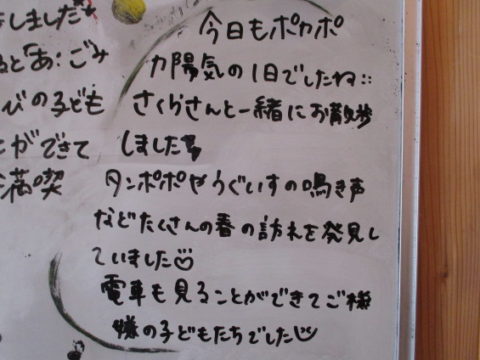 今日もポカポ
カ陽気の1日でしたね::
さくらさんと一緒にお散歩
しました
タンポポやうぐいすの鳴き声
などたくさんの春の訪れを発見し
ていました
電車も見ることができてご機
嫌の子どもたちでした
しました
ると「あ!ごみ
びの子ども
とができて
満喫